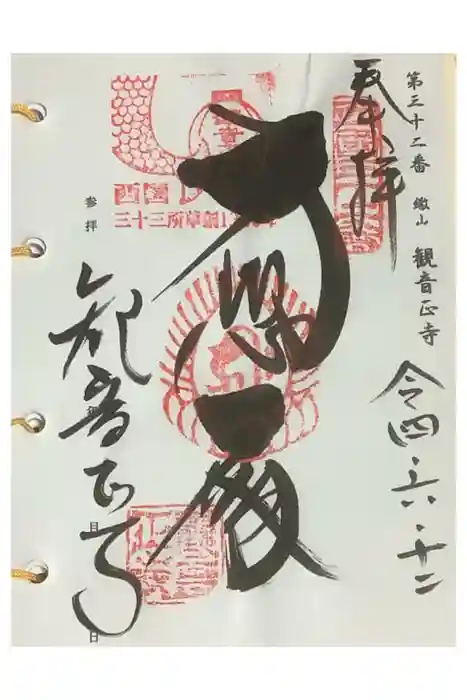 第三十二番 繖山 観音正寺
令四・六・十二
奉拝
大悲殿
西国
三十三所草創1300年
参拝 年 月 日
観音正寺